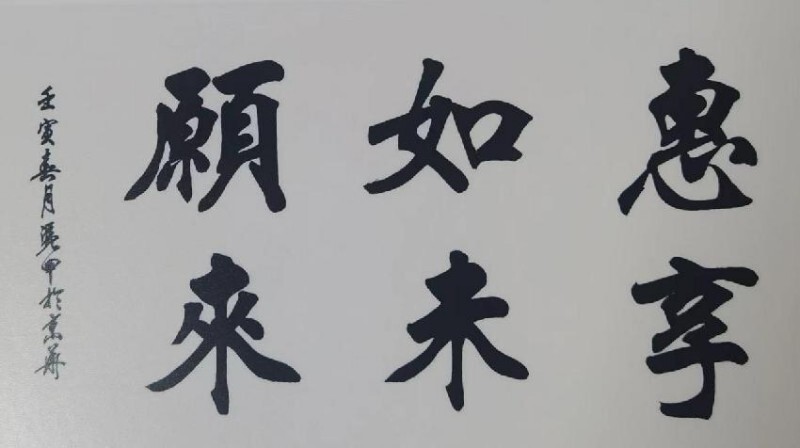 惠如願
享未來
壬寅春月甲於京華